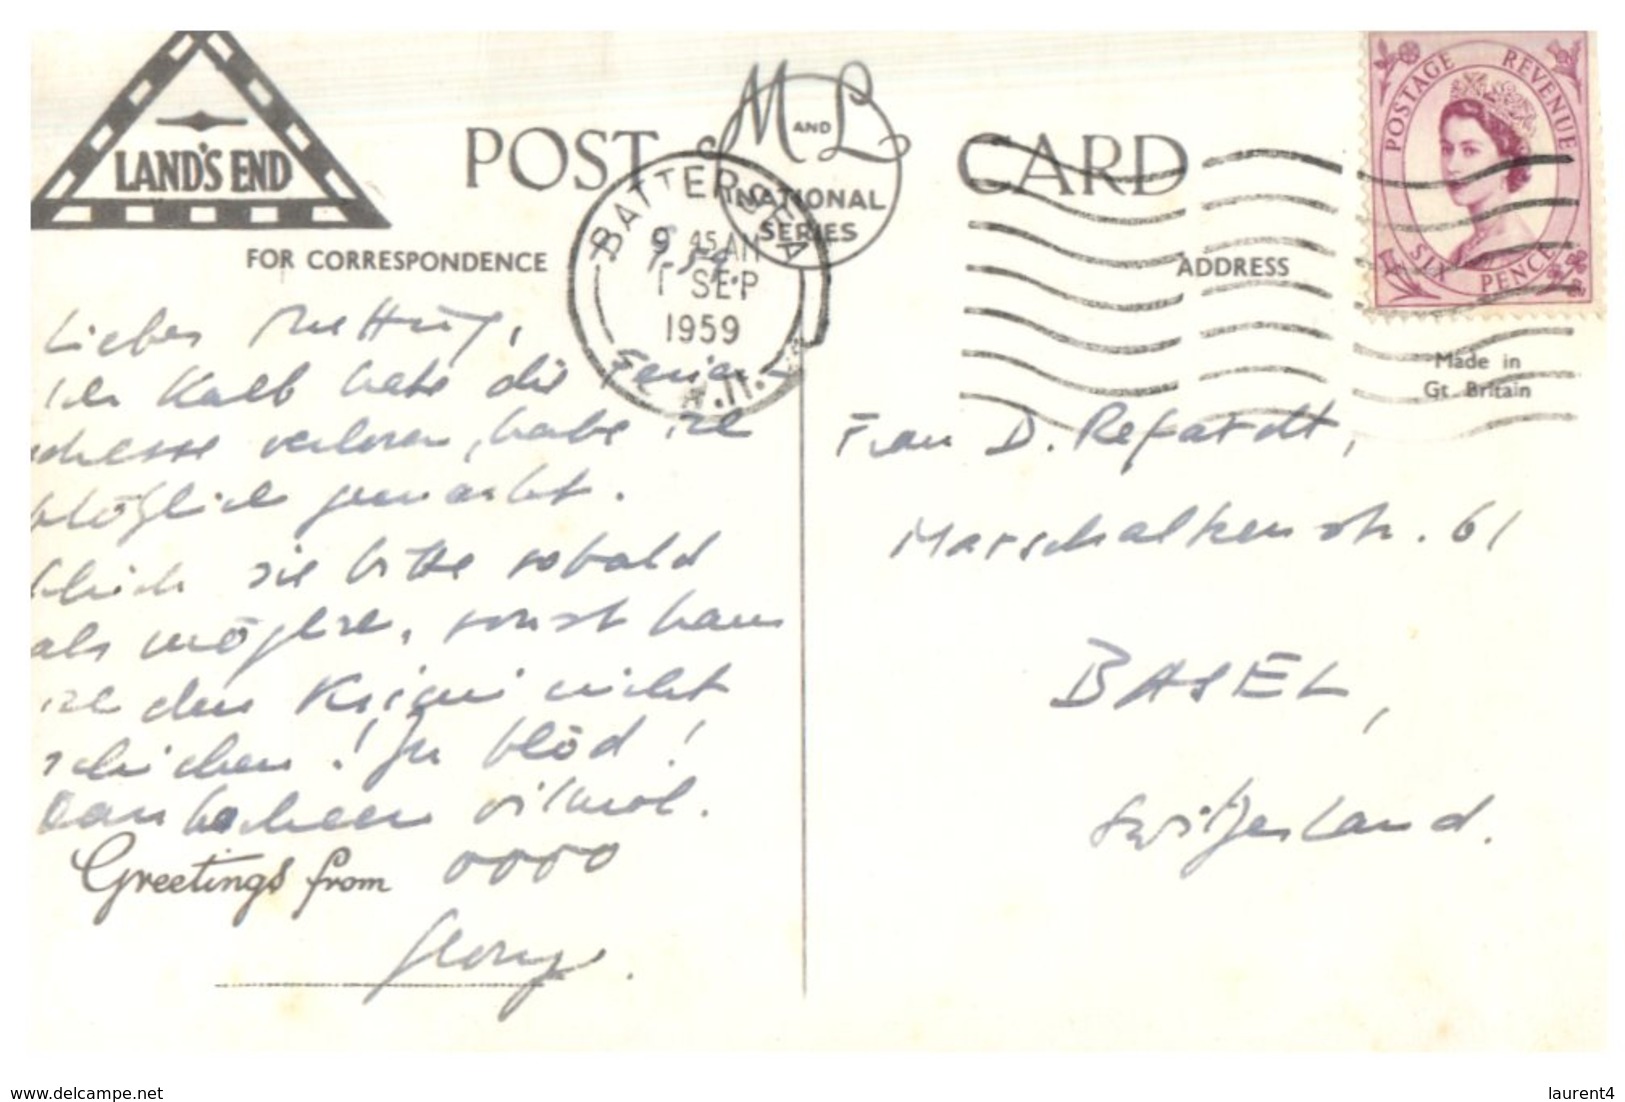 LAND'S END
POST CARD
M AND L
NATIONAL
SERIES
BATTERSEA
9 45 AM
1 SEP
1959
POSTAGE REVENUE
SIX PENCE
FOR CORRESPONDENCE
ADDRESS
Made in
Gt. Britain
Liebes
Ich Kalb habe die Ferien
adresse verloren, habe ich
gemacht.
Schick sie bitte sobald
als möglich, sonst kann
ich den Krimi nicht
schicken! Zu blöd!
vilmol.
Greetings from oooo
George.
Frau D. Refardt,
Marschalkenstr. 61
BASEL,
Switzerland.
www.delcampe.net
laurent4